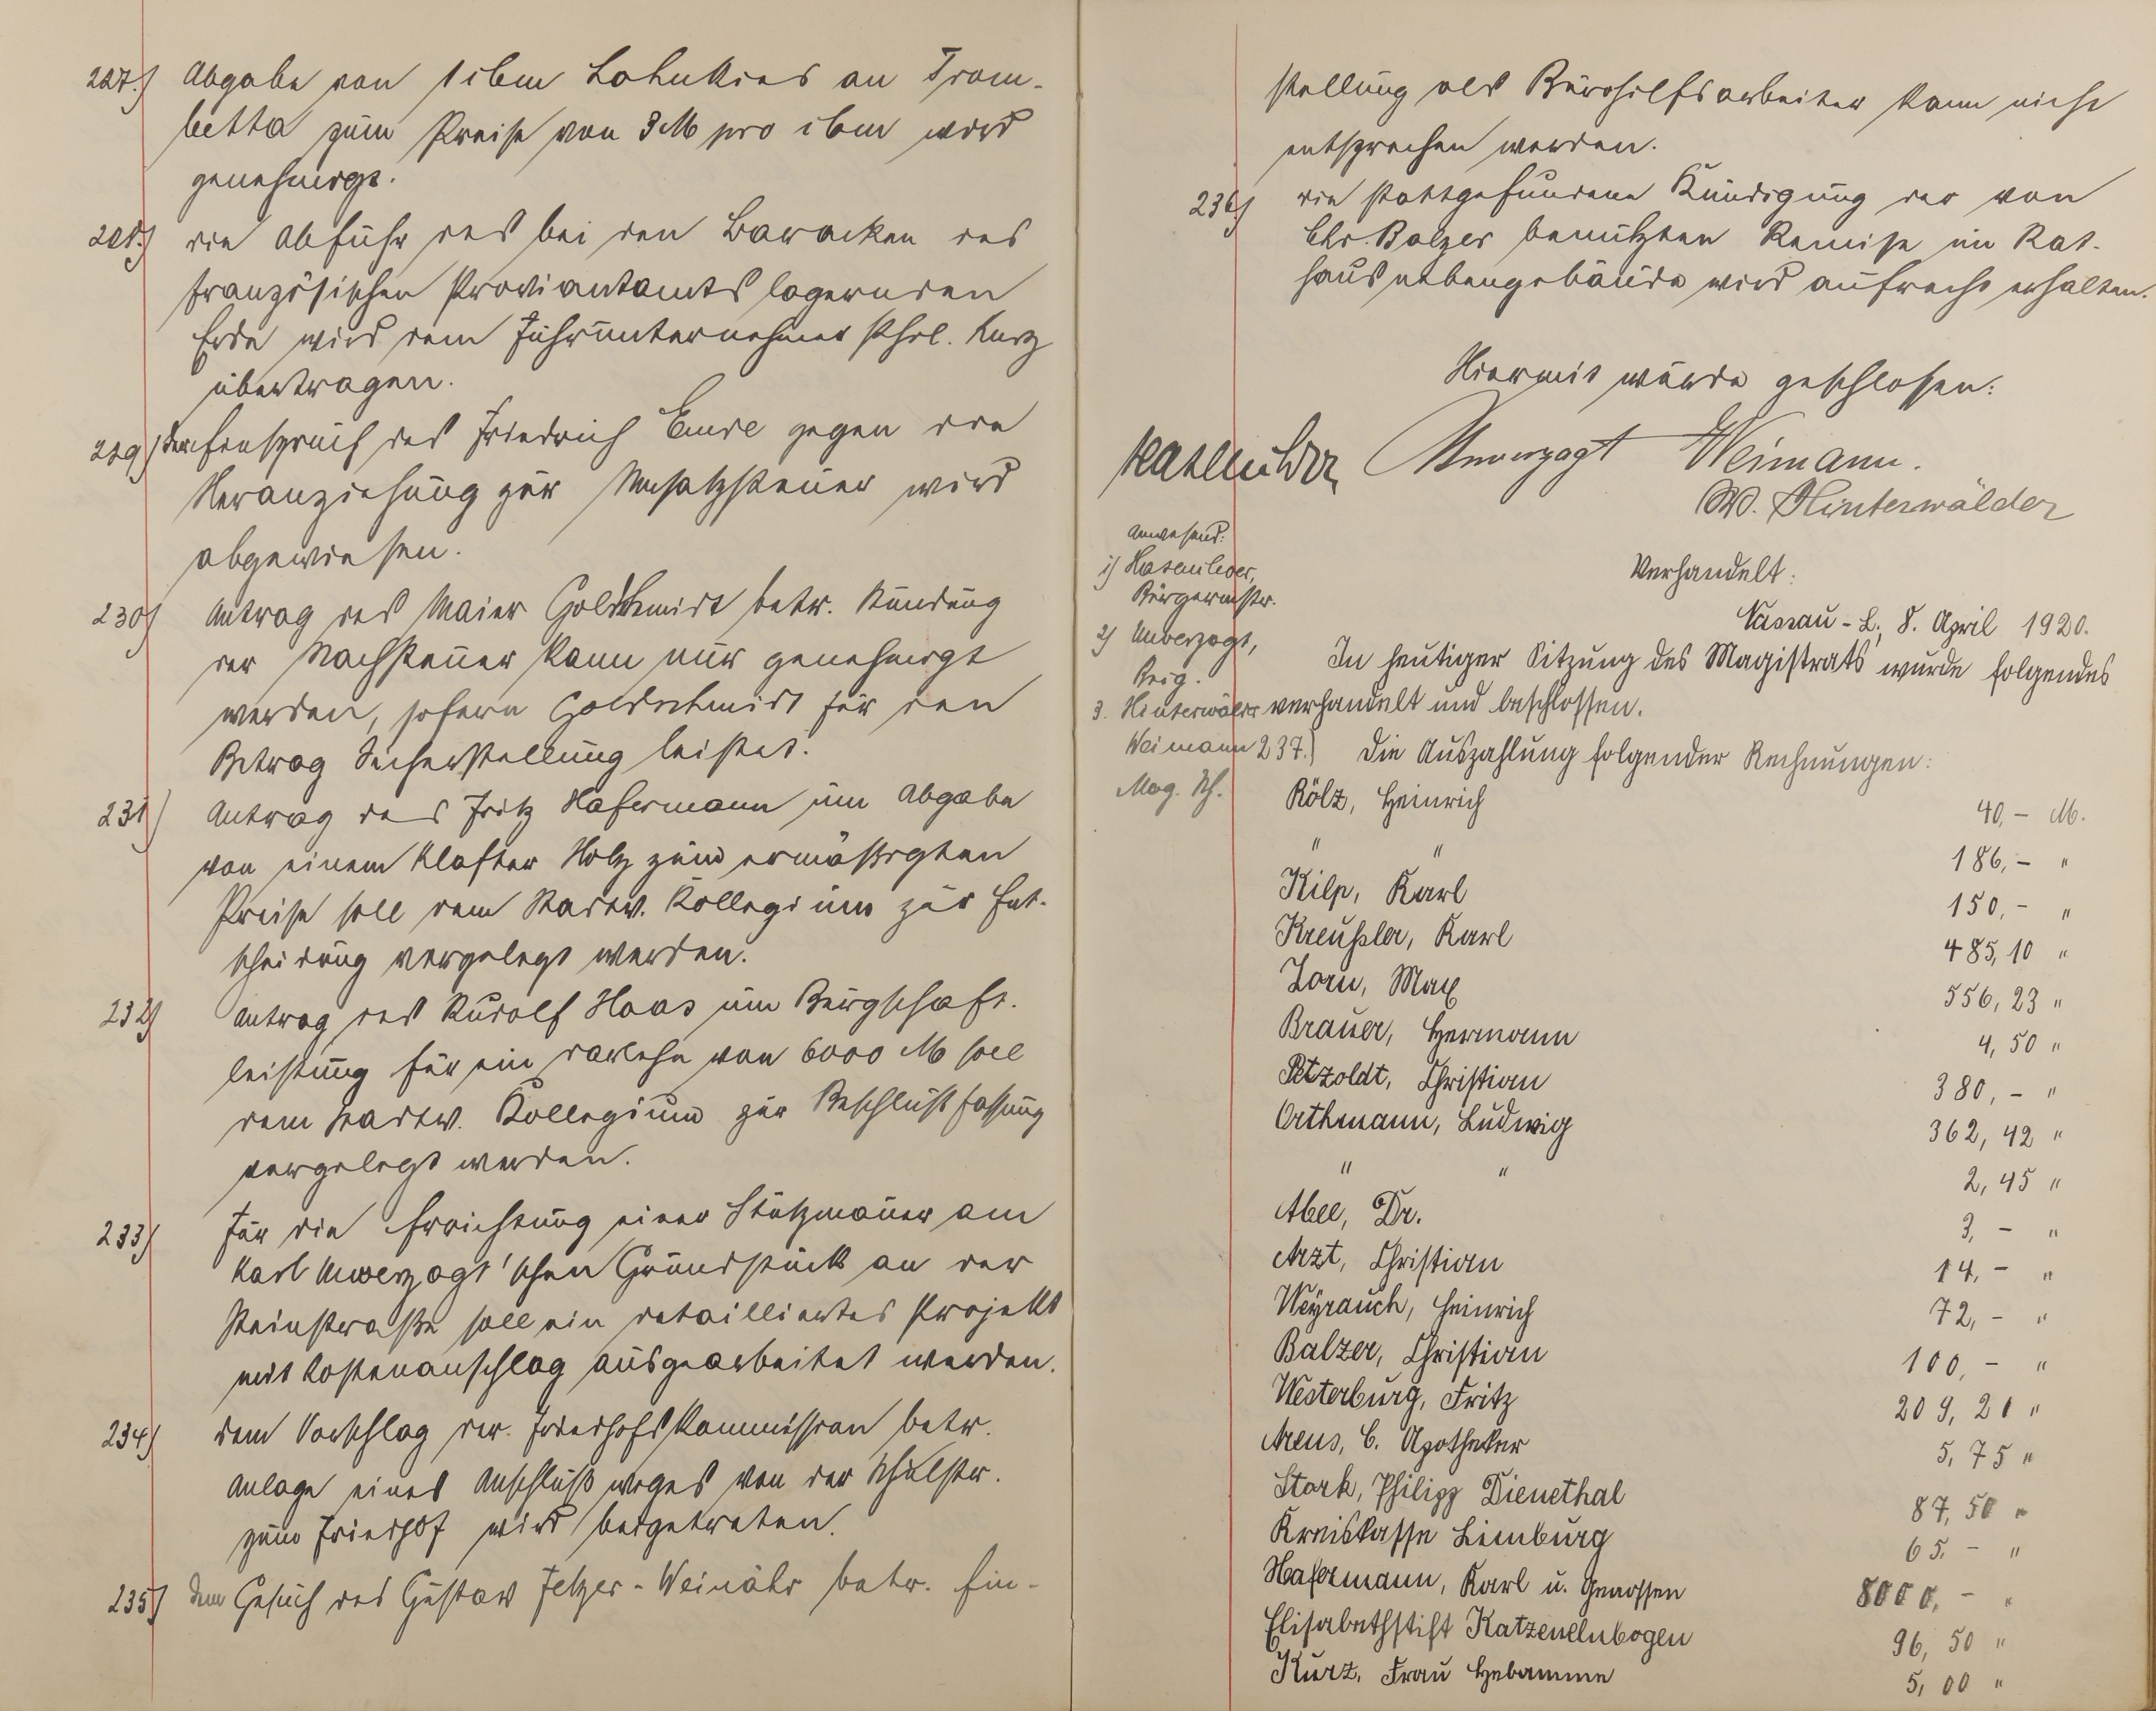 227.) Abgabe von 1 cbm Lahnkies an Trom-
betta zum Preise von 3 M pro cbm wird
genehmigt.
228.) die Abfuhr des bei den Baracken des
französischen Proviantamts lagernden
Erde wird dem Fuhrunternehmer Phil. Kurz
übertragen.
229) der Einspruch des Friedrich Emde gegen die
Heranziehung zur Umsatzsteuer wird
abgewiesen.
230) Antrag des Maier Goldschmidt betr. Stundung
der Nachsteuer kann nur genehmigt
werden, sofern Goldschmidt für den
Betrag Sicherstellung leistet.
231) Antrag des Fritz Hafermann um Abgabe
von einem Klafter Holz zum ermäßigten
Preise soll dem Stadtv. Kollegium zur Ent-
scheidung vorgelegt werden.
232) Antrag des Rudolf Haas um Bürgschaft-
leistung für ein Darlehn von 6000 M soll
dem Stadtv. Kollegium zur Beschlußfassung
vorgelegt werden.
233) Für die Errichtung einer Stützmauer am
Karl Unverzagt'schen Grundstück an der
Steinstraße soll ein detailliertes Projekt
mit Kostenanschlag ausgearbeitet werden.
234) dem Vorschlag der Friedhofskommission betr.
Anlage eines Anschlußweges von der Schulstr.
zum Friedhof wird beigetreten.
235) dem Gesuch des Gustav Jelzer-Weinähr betr. Ein-
stellung als Bürohilfsarbeiter kann nicht
entsprochen werden.
236) die stattgefundene Kündigung der von
Chr. Balzer benutzten Remise im Rat-
hausnebengebäude wird aufrecht erhalten.
Hiermit wurde geschlossen:
Hasenclever Unverzagt Weimann.
W. Hinterwälder
Anwesend:
1) Hasenclever,
Bürgermstr.
2) Unverzagt,
Beig.
3. Hinterwälder
Weimann
Mag. Sch.
Verhandelt:
Nassau-L., 8. April 1920.
In heutiger Sitzung des Magistrats wurde folgendes
verhandelt und beschlossen.
237.) Die Auszahlung folgender Rechnungen:
Rölz, Heinrich 40,- M.
" " 186,- "
Kilp, Karl 150,- "
Kreußler, Karl 485,10 "
Zorn, Max 556,23 "
Brauer, Hermann 4,50 "
Petzoldt, Christian 380,- "
Orthmann, Ludwig 362,42 "
" " 2,45 "
Abee, Dr. 3,- "
Arzt, Christian 14,- "
Weyrauch, Heinrich 72,- "
Balzer, Christian 100,- "
Westerburg, Fritz 209,20 "
Arens, C. Apotheker 5,75 "
Stork, Philipp Dienethal 87,50 "
Kreiskasse Limburg 65,- "
Hafermann, Karl u. Genossen 8000,- "
Elisabethstift Katzenelnbogen 96,50 "
Kurz, Frau Hebamme 5,00 "